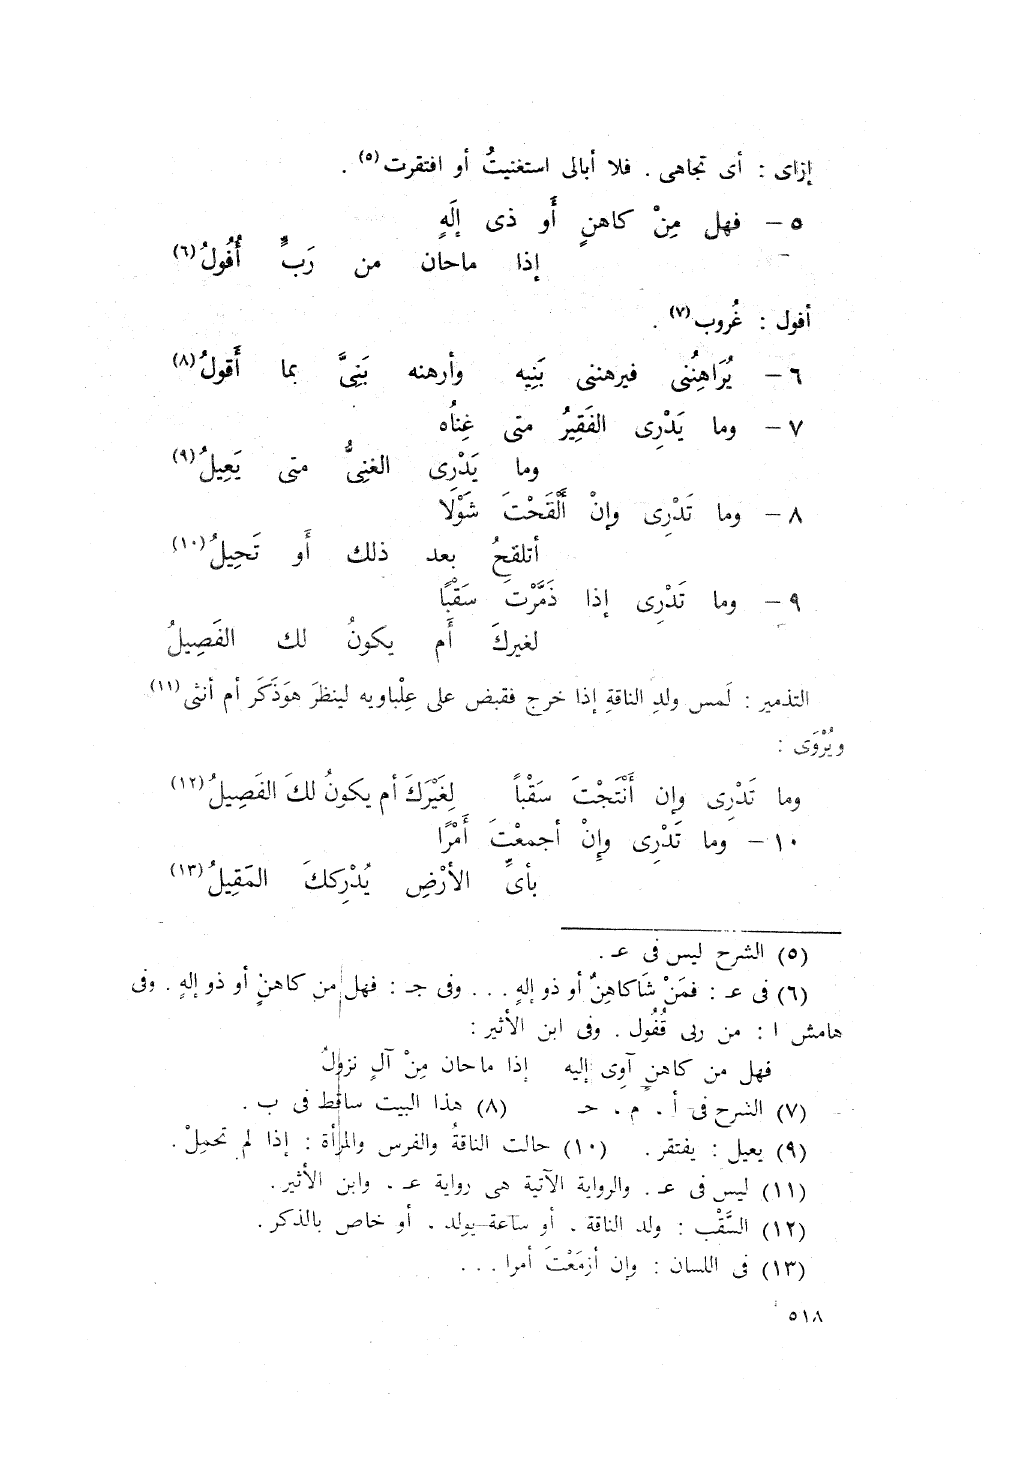 إزاى : أى تجاهى . فلا أبالى استغنيتُ أو افتقرت (٥) .
٥ – فهل مِنْ كاهنٍ أَو ذى إلَهٍ
إذا ماحان من رَبٍّ أُفُولُ (٦)
أفول : غُروب (٧) .
٦ – يُرَاهِنُنى فيرهننى بَنِيه وأرهنه بَنِىَّ بما أَقولُ (٨)
٧ – وما يَدْرِى الفَقِيرُ متى غِنُاه
وما يَدْرِى الغنِىُّ متى يَعِيلُ (٩)
٨ – وما تَدْرِى وإنْ أَلْقَحْتَ شَوْلَا
أتلقحُ بعد ذلك أَو تَحِيلُ (١٠)
٩ – وما تَدْرِى إذا ذَمَّرْتَ سَقْبًا
لغيركَ أَم يكونُ لك الفَصِيلُ
التذمير : لَمس ولدِ الناقةِ إذا خرج فقبض على عِلْباويه لينظرَ هوَذَكَر أم أنثى (١١)
ويُرْوَى :
وما تَدْرِى وإن أَنْتَجْتَ سَقْباً لِغَيْرَكَ أم يكونُ لكَ الفَصِيلُ (١٢)
١٠ – وما تَدْرِى وإِنْ أجمعْتَ أَمْرًا
بأىِّ الأرْضِ يُدْرِككَ المَقِيلُ (١٣)
(٥) الشرح ليس فى عـ .
(٦) فى عـ : فمَنْ شَاكاهِنٌ أو ذو إلهٍ . . . وفى جـ : فهل من كاهنٍ أو ذو إلهٍ . وفى
هامش ا : من ربى قُفُول . وفى ابن الأثير :
فهل من كاهنٍ آوِى إليه إذا ماحان مِنْ آلٍ نزولُ
(٧) الشرح فى أ . م . حـ (٨) هذا البيت ساقط فى ب .
(٩) يعيل : يفتقر . (١٠) حالت الناقةُ والفرس والمرأة : إذا لم تحمِلْ .
(١١) ليس فى عـ . والرواية الآتية هى رواية عـ . وابن الأثير .
(١٢) السَّقْب : ولد الناقة . أو ساعة يولد . أو خاص بالذكر .
(١٣) فى اللسان : وإن أزمَعْتَ أمرا . . .
٥١٨